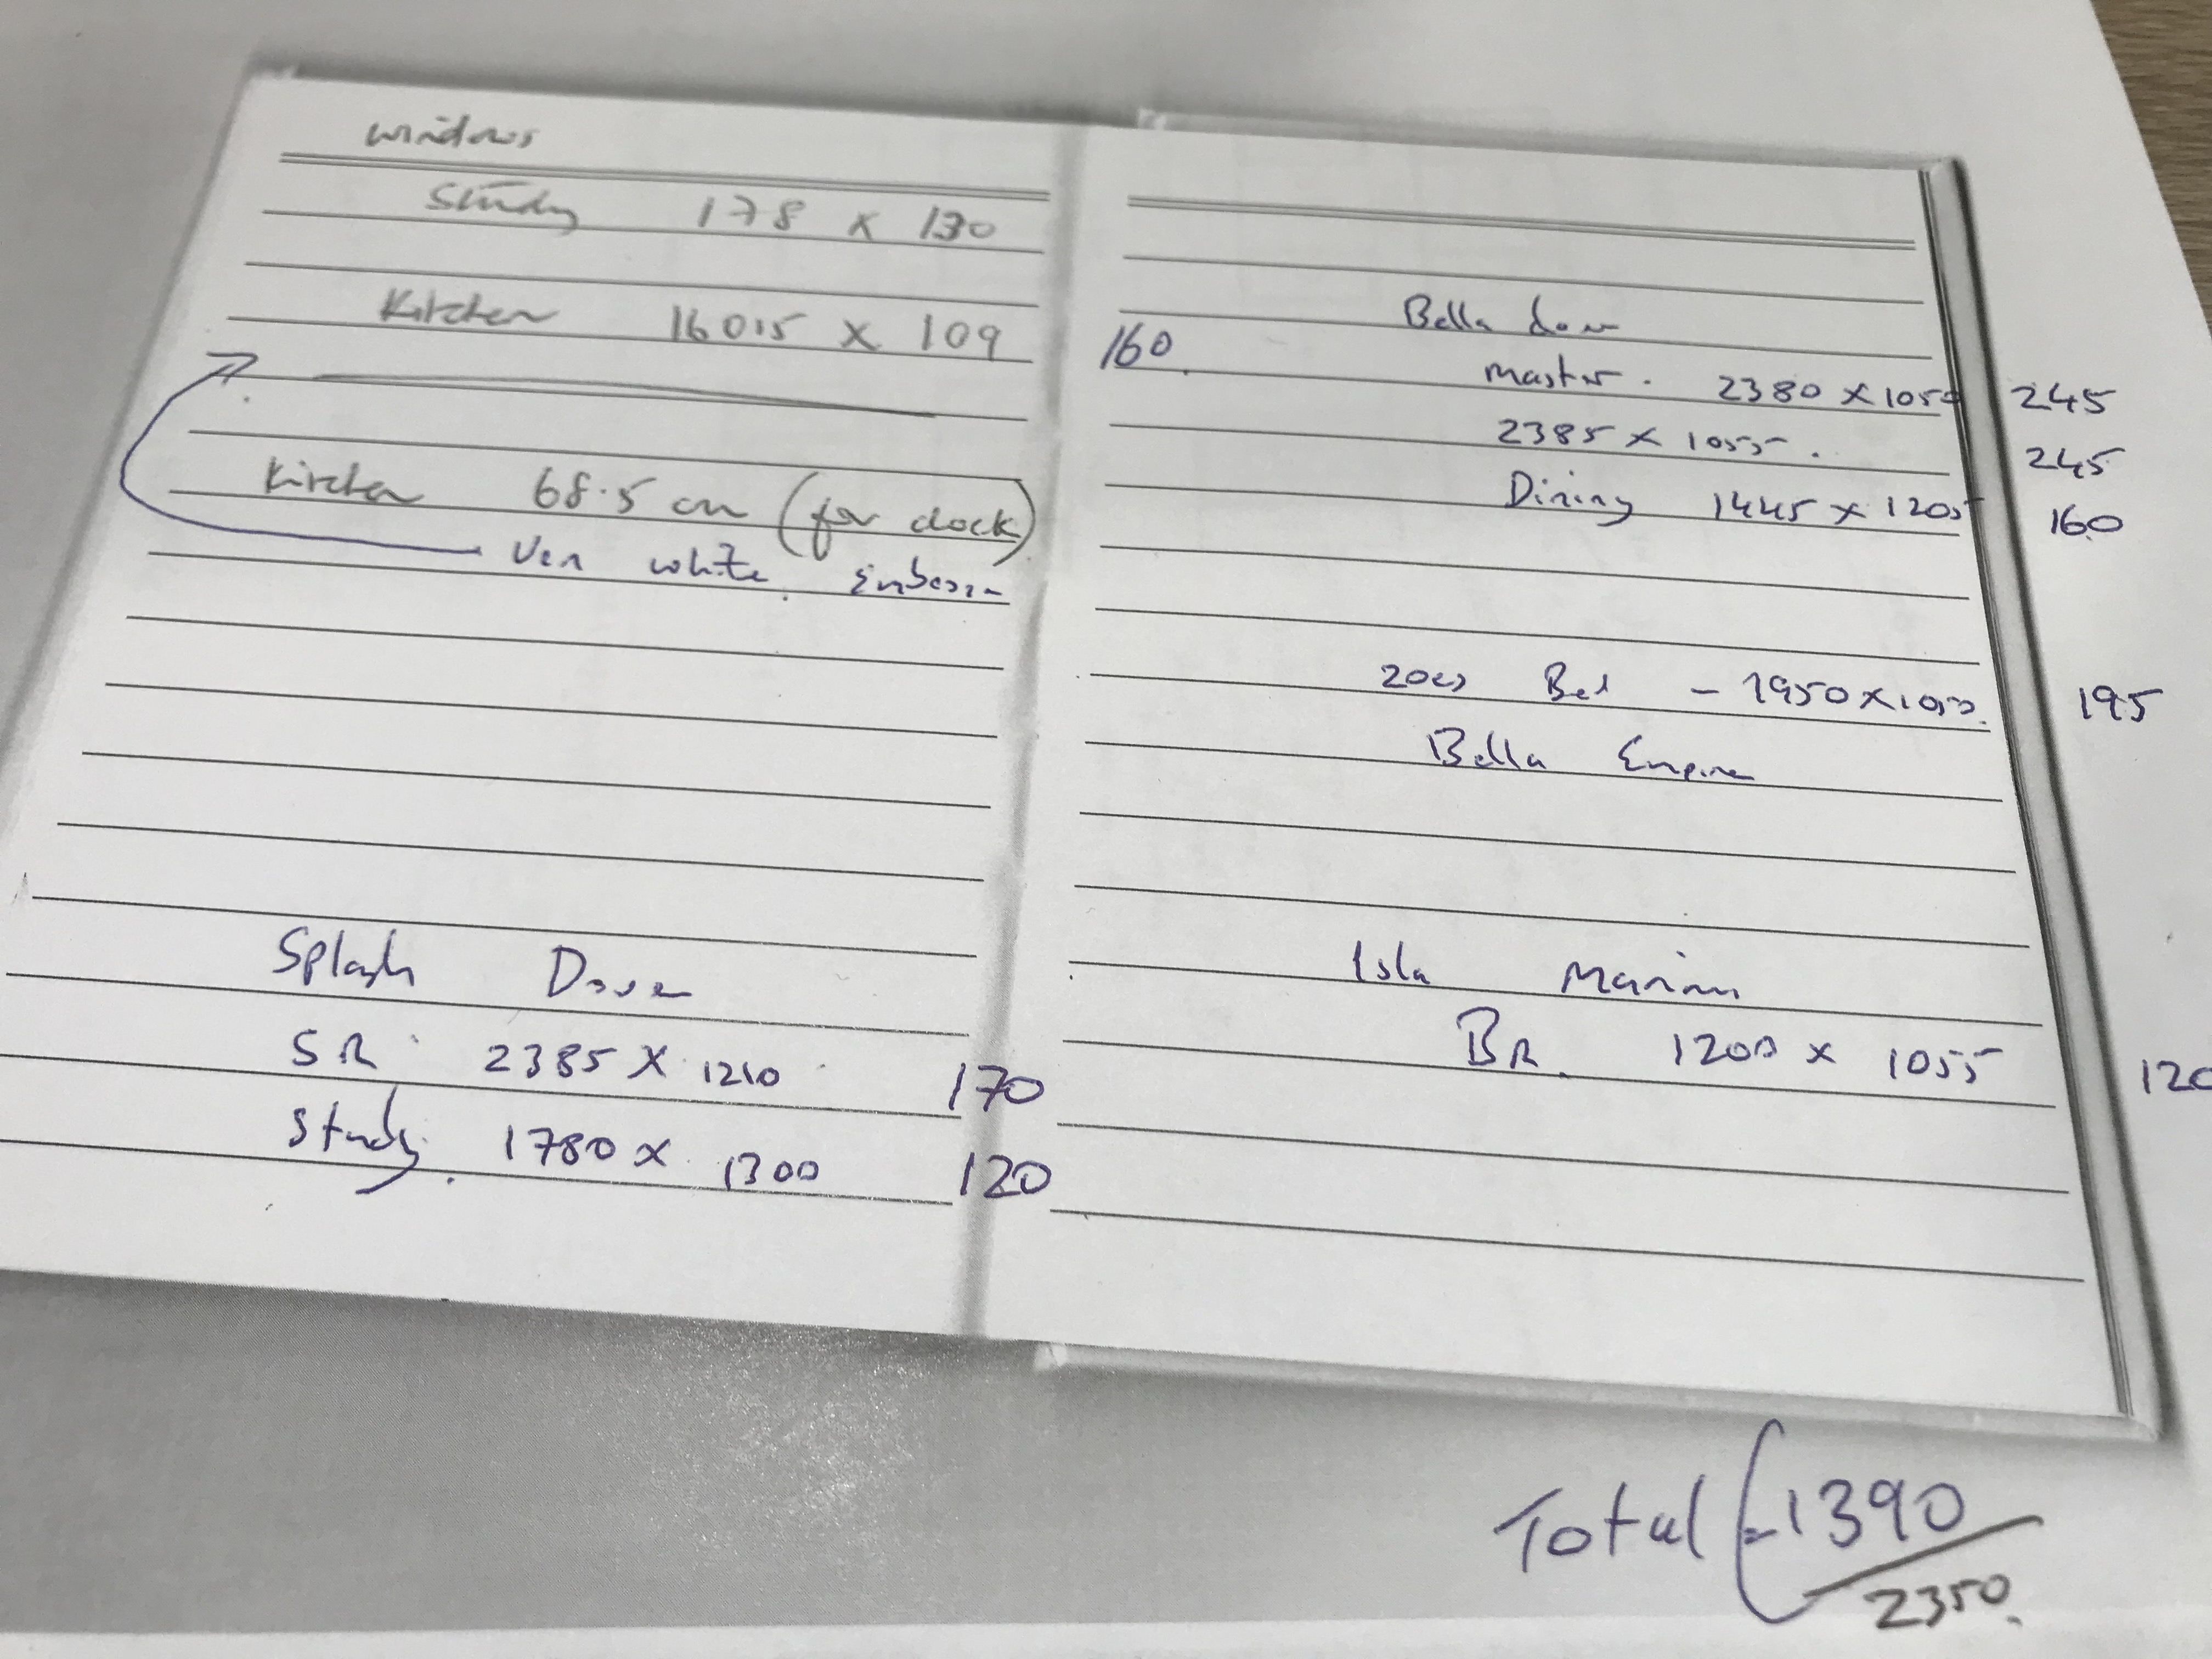 windows
Study 178 x 130
Kitchen 160.5 x 109
Kitchen 68.5 cm (for clock)
Ven white.
Splash
SR 2385 x 1210 170
Study. 1780 x 1300 120
160
Bella
Master. 2380 x 1050 245
2385 x 1055. 245
Dining 1445 x 1205 160
Bed - 1950 x 195
Bella Empire
Isla
BR. 1200 x 1055 120
Total = 1390
2350.